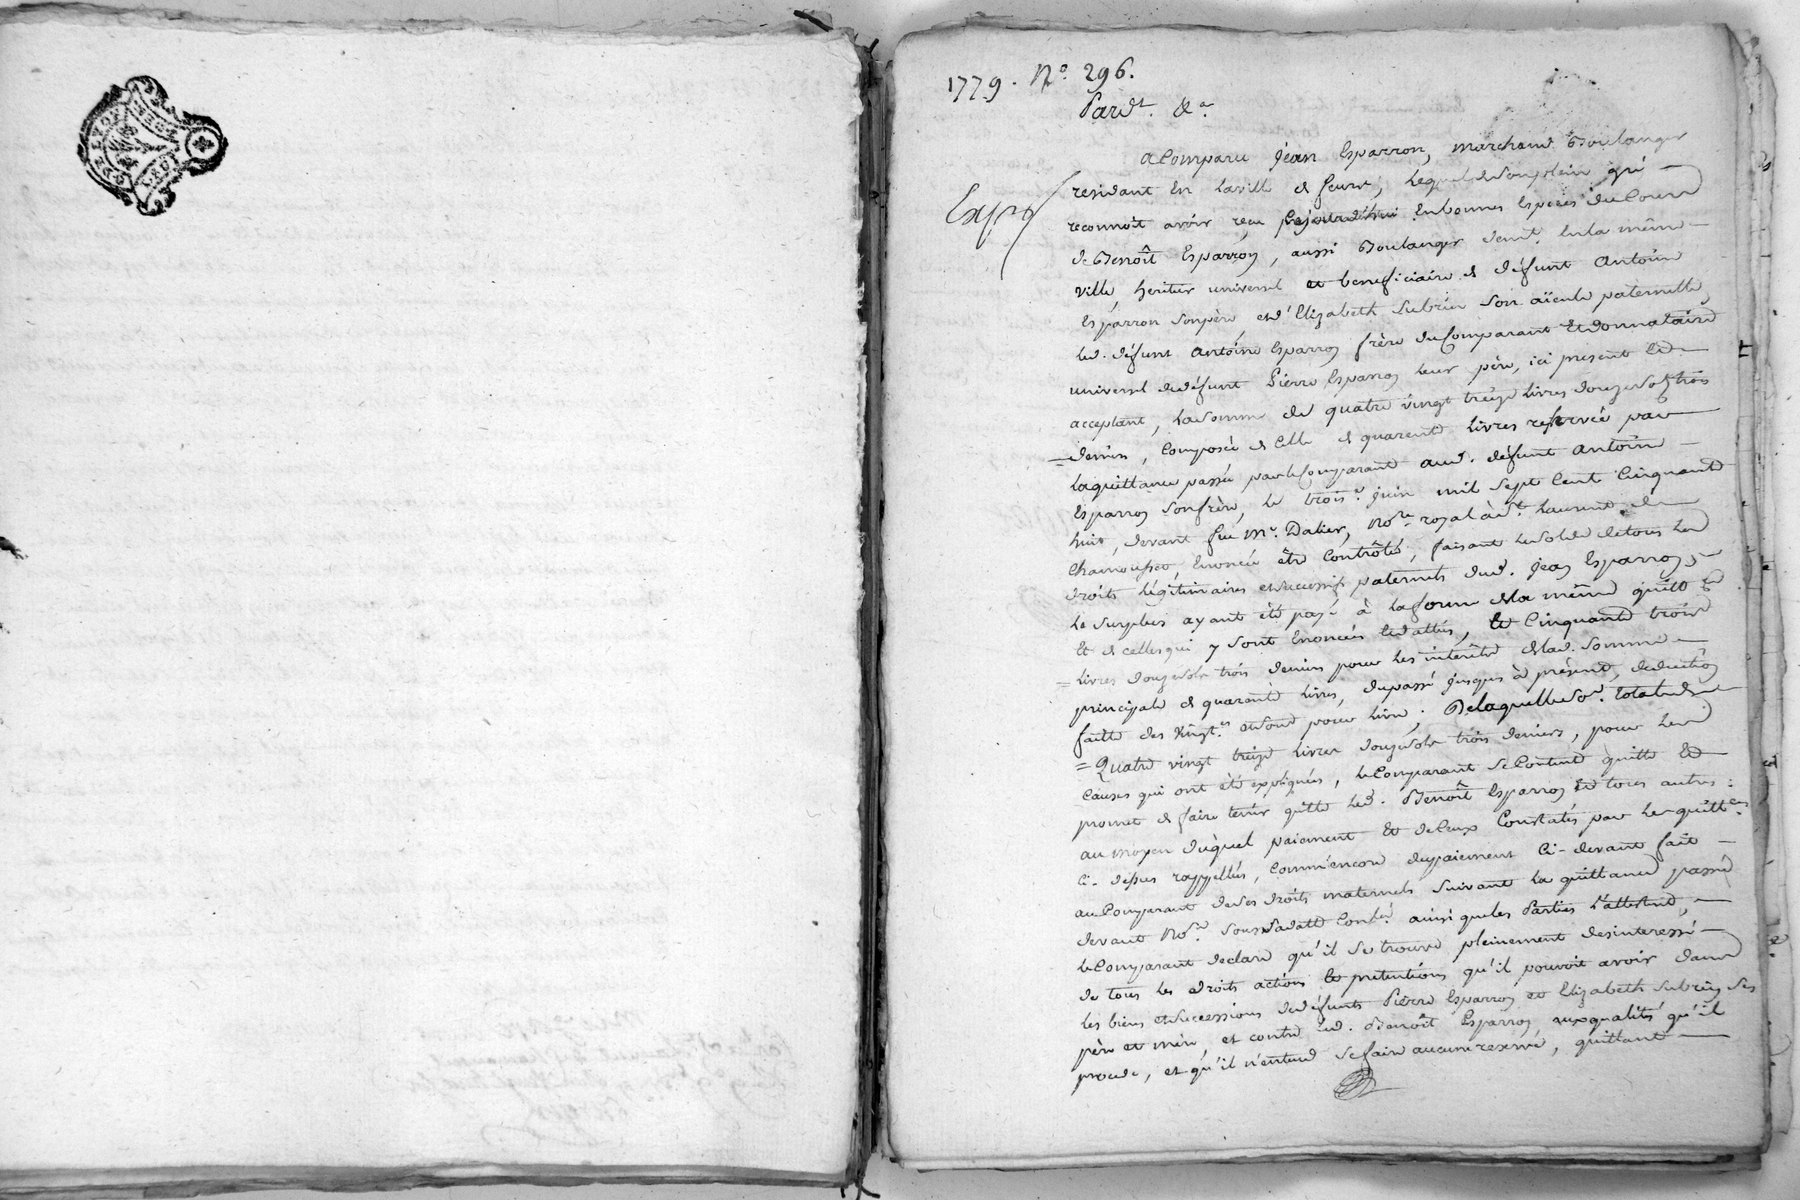 1779. N.° 296.
Pard.t &.a
a Comparu Jean Esparron, marchand Boulanger
Exp.é
residant En la ville de feurs, lequel de son plein gré
reconnoit avoir reçu cejourd'hui En bonnes Especes du Cours
de Benoît Esparron, aussi Boulanger dem.t En la même
ville, heritier universel et beneficiaire de défunt Antoine
Esparron son père, et d'Elizabeth Subrin son aïeule paternelle,
led. défunt Antoine Esparron frère du Comparant Et donnataire
universel dudéfunt Pierre Esparron leur père, ici present Et
acceptant, la Somme de quatre vingt treize livres douze sols trois
deniers, Composée de Celle de quarente livres reservée par
la quittance passée par le Comparant aud. défunt Antoine
Esparron son frère, le trois.e juin mil Sept Cent Cinquante
huit, devant feu M.e Dalier, No.re royal à S.t Laurent de
Chamousset, Enoncée être Contrôlée, faisant le solde de tous les
droits légitimaires et successifs paternels dud. Jean Esparron,
le Surplus ayant été payé à la forme de la même quitt.ce
Et de celles qui y sont Enoncées Et dattées, Et Cinquante trois
livres douze sols trois deniers pour les interêts de lad. Somme
principale de quarante livres, du passé jusques à présent, deduction
faitte des vingt.es et sond pour livre; De laquelle So.e totale de
Quatre vingt treize livres douze sols trois deniers, pour les
Causes qui ont été expliquées, le Comparant Se Contente quitte Et
promet de faire tenir quitte led. Benoît Esparron Et tous autres:
au moyen duquel paiement Et de Ceux Constatés par les quitt.ces
Ci-dessus rappellées, Comm'encore du paiement Ci-devant fait
au Comparant de ses droits maternels suivant la quittance passée
devant No.re Soussi datte Con.lée ainsi que les Parties l'attestent,
le Comparant declare qu'il Se trouve pleinement desinteressé
de tous les droits actions Et pretentions qu'il pouvoit avoir dans
les biens et Successions de défunts Pierre Esparron et Elizabeth Subrin Ses
père et mère, et contre led. Benoît Esparron auxqualités qu'il
procede, et qu'il n'entend Se faire aucune reserve, quittant